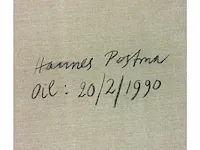 Hannes Postma
Oil: 20/2/1990